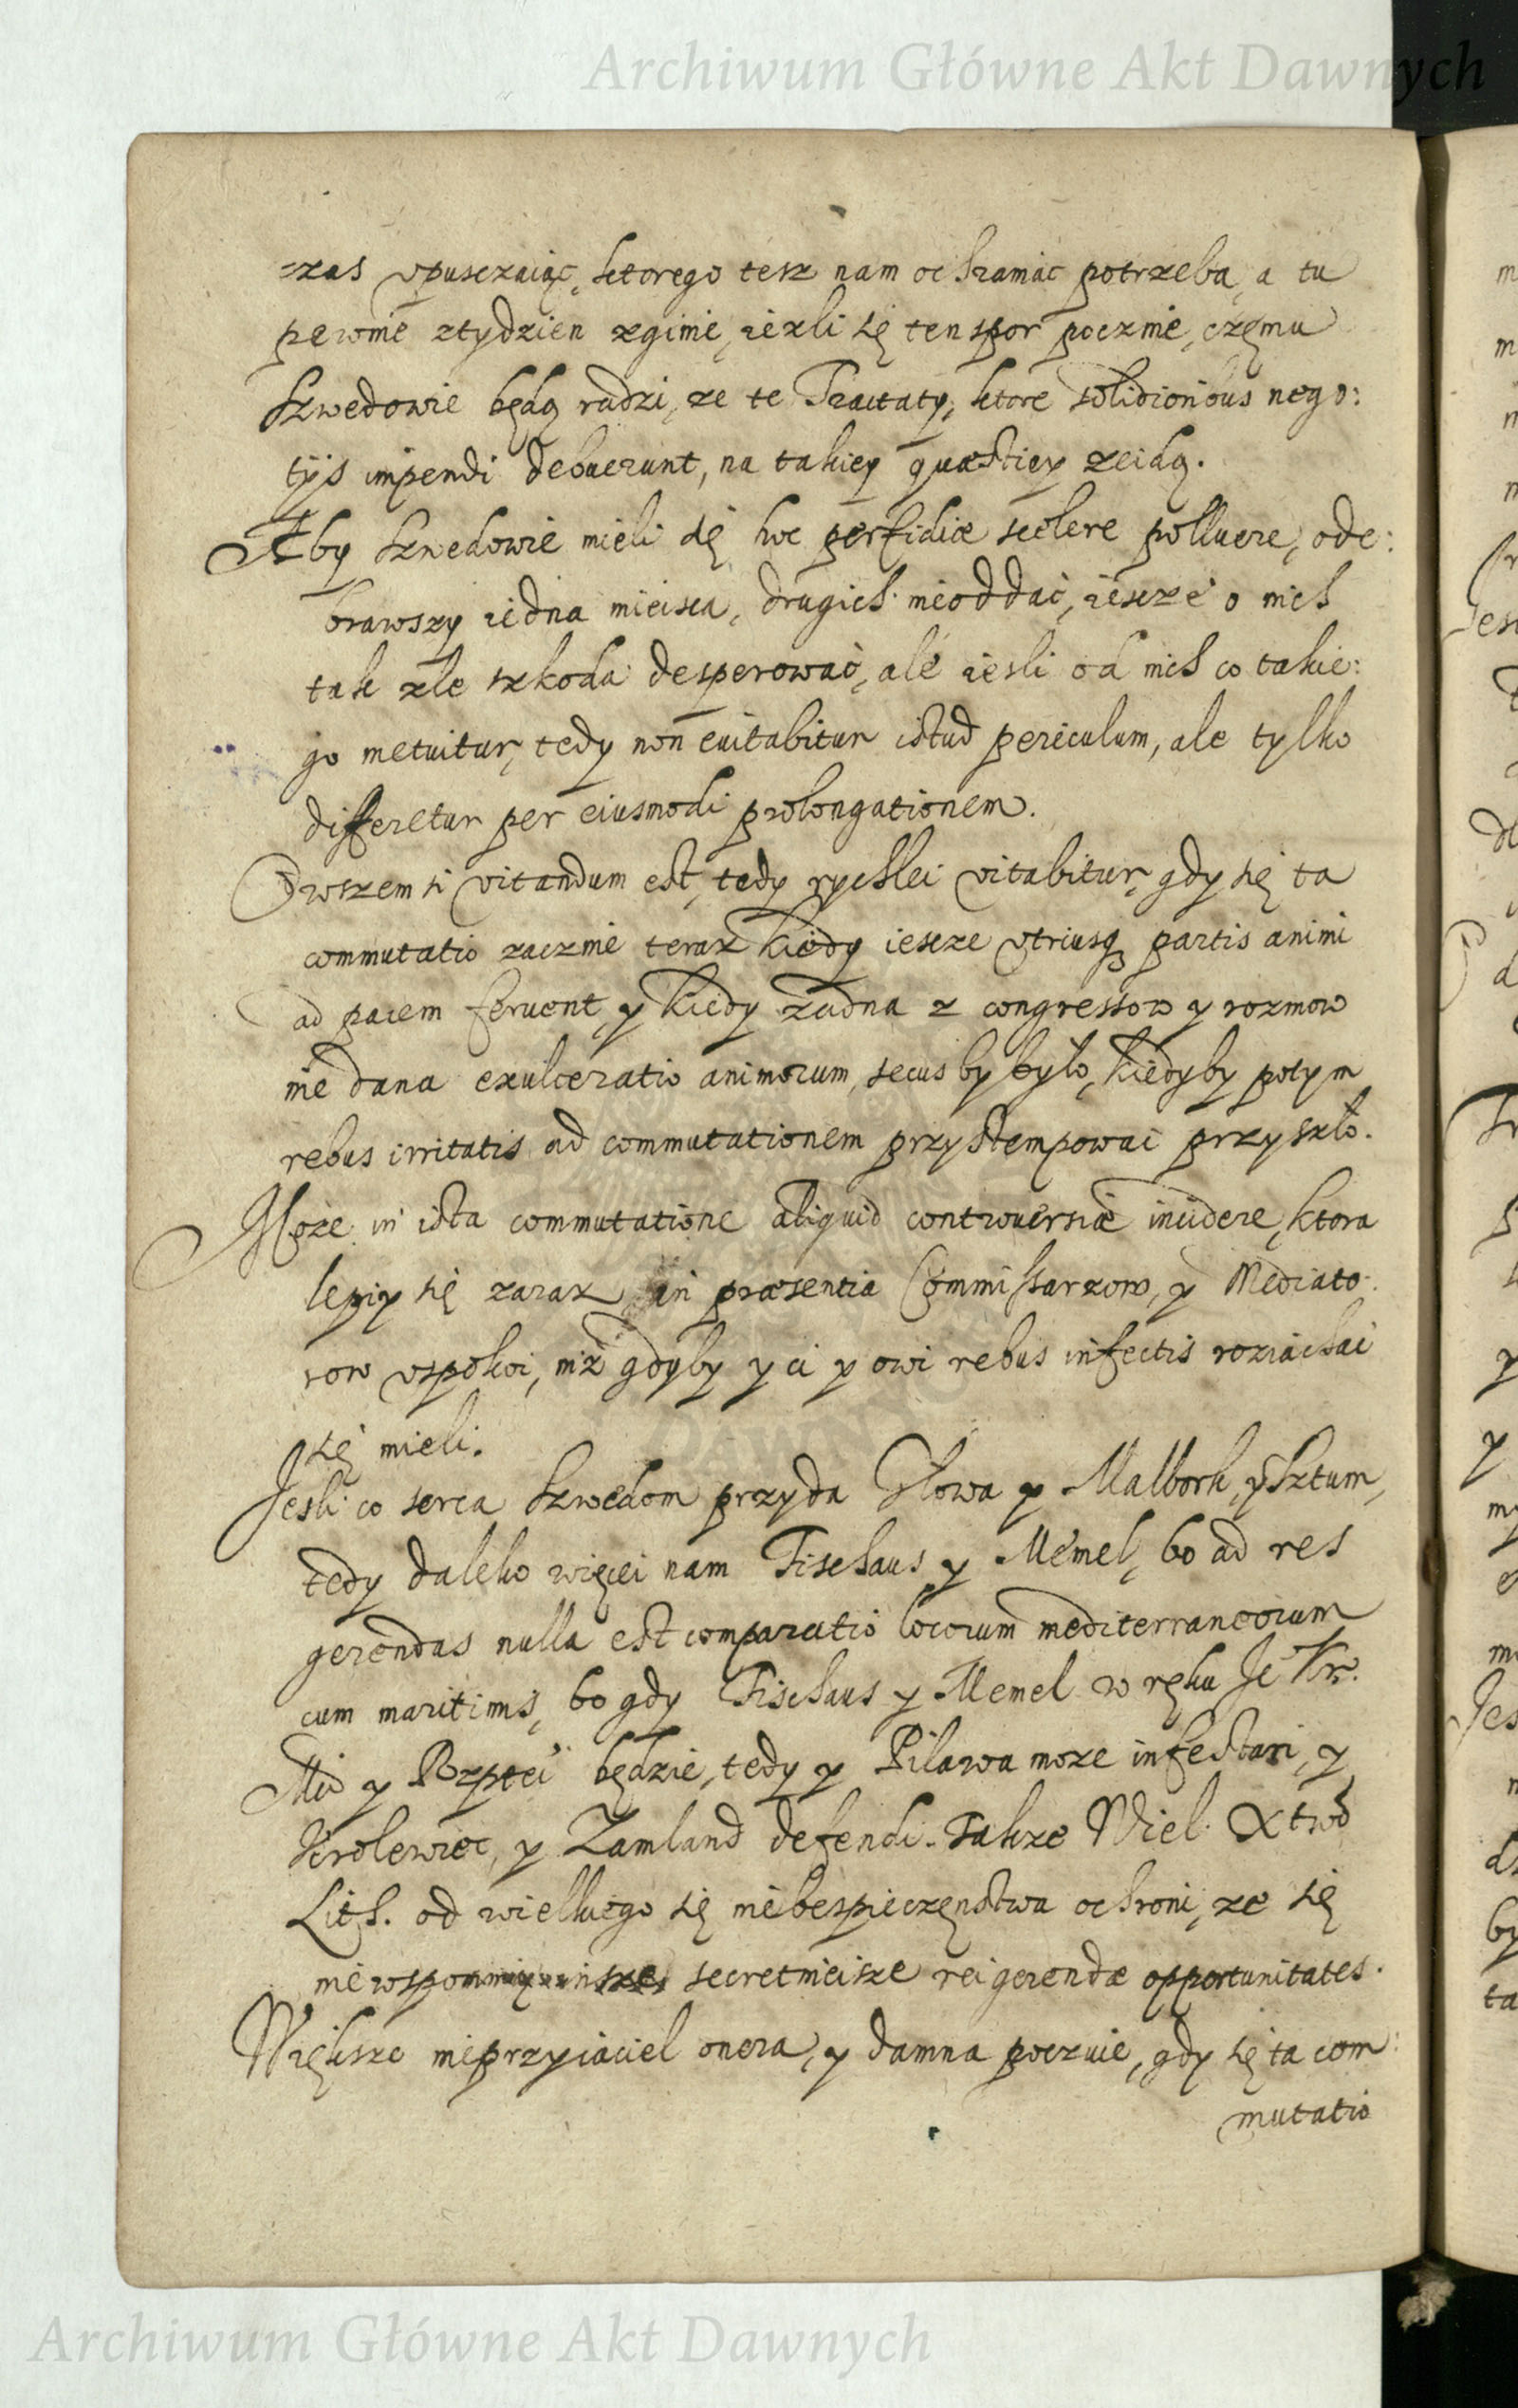 Archiwum Główne Akt Dawnych
=zas vpusczaiąc, ktorego tesz nam ochramac potrzeba, a tu
pewnie ztydzien zginie, iezli się ten spor pocznie, czemu
Szwedowie będą radzi, ze te Tractaty, ktore solidioribus nego:
tijs impendi debuerunt, na takiey quæstiey zeidą.
Aby Szwedowie mieli się hoc perfidiæ scelere polluere, ode:
brawszy iedna mieisca, drugich nieoddać, iescze o nich
tak zle szkoda desperować, ale iesli od nich co takie:
go metuitur, tedy non euitabitur istud periculum, ale tylko
differetur per eiusmodi prolongationem.
Owszem si vitandum est, tedy rychlei vitabitur, gdy się ta
commutatio zacznie teraz kiedy iescze vtriusq partis animi
ad pacem feruent, y kiedy zadna z congressow y rozmow
nie dana exulceratio animorum, secus by było, kiedyby potym
rebus irritatis ad commutationem przystempowac przyszło.
Może in ista commutatione aliquid controuersiæ incidere, ktora
lepiy się zaraz in præsentia Commissarzow, y Mediato:
row vspokoi, niż gdyby y ci y owi rebus infectis roziachac
się mieli.
Jesli co serca Szwedom przyda Głowa y Malbork, y Sztum,
tedy daleko więcei nam Fischaus y Memel, bo ad res
gerendas nulla est comparatio locorum mediterraneorum
cum maritimis, bo gdy Fischaus y Memel w ręku Je Kr.
Mci y Rzptei będzie, tedy y Pilawa moze infestari, y
Krolewiec, y Zamland defendi. Takze Wiel. Xtwo
Lith. od wielkiego się niebespieczenstwa ochroni, ze się
nie wspomnią insze secretnieisze rei gerendæ opportunitates.
Większe nieprzyiaciel onera, y damna poczuie, gdy się ta com:
mutatio
Archiwum Główne Akt Dawnych